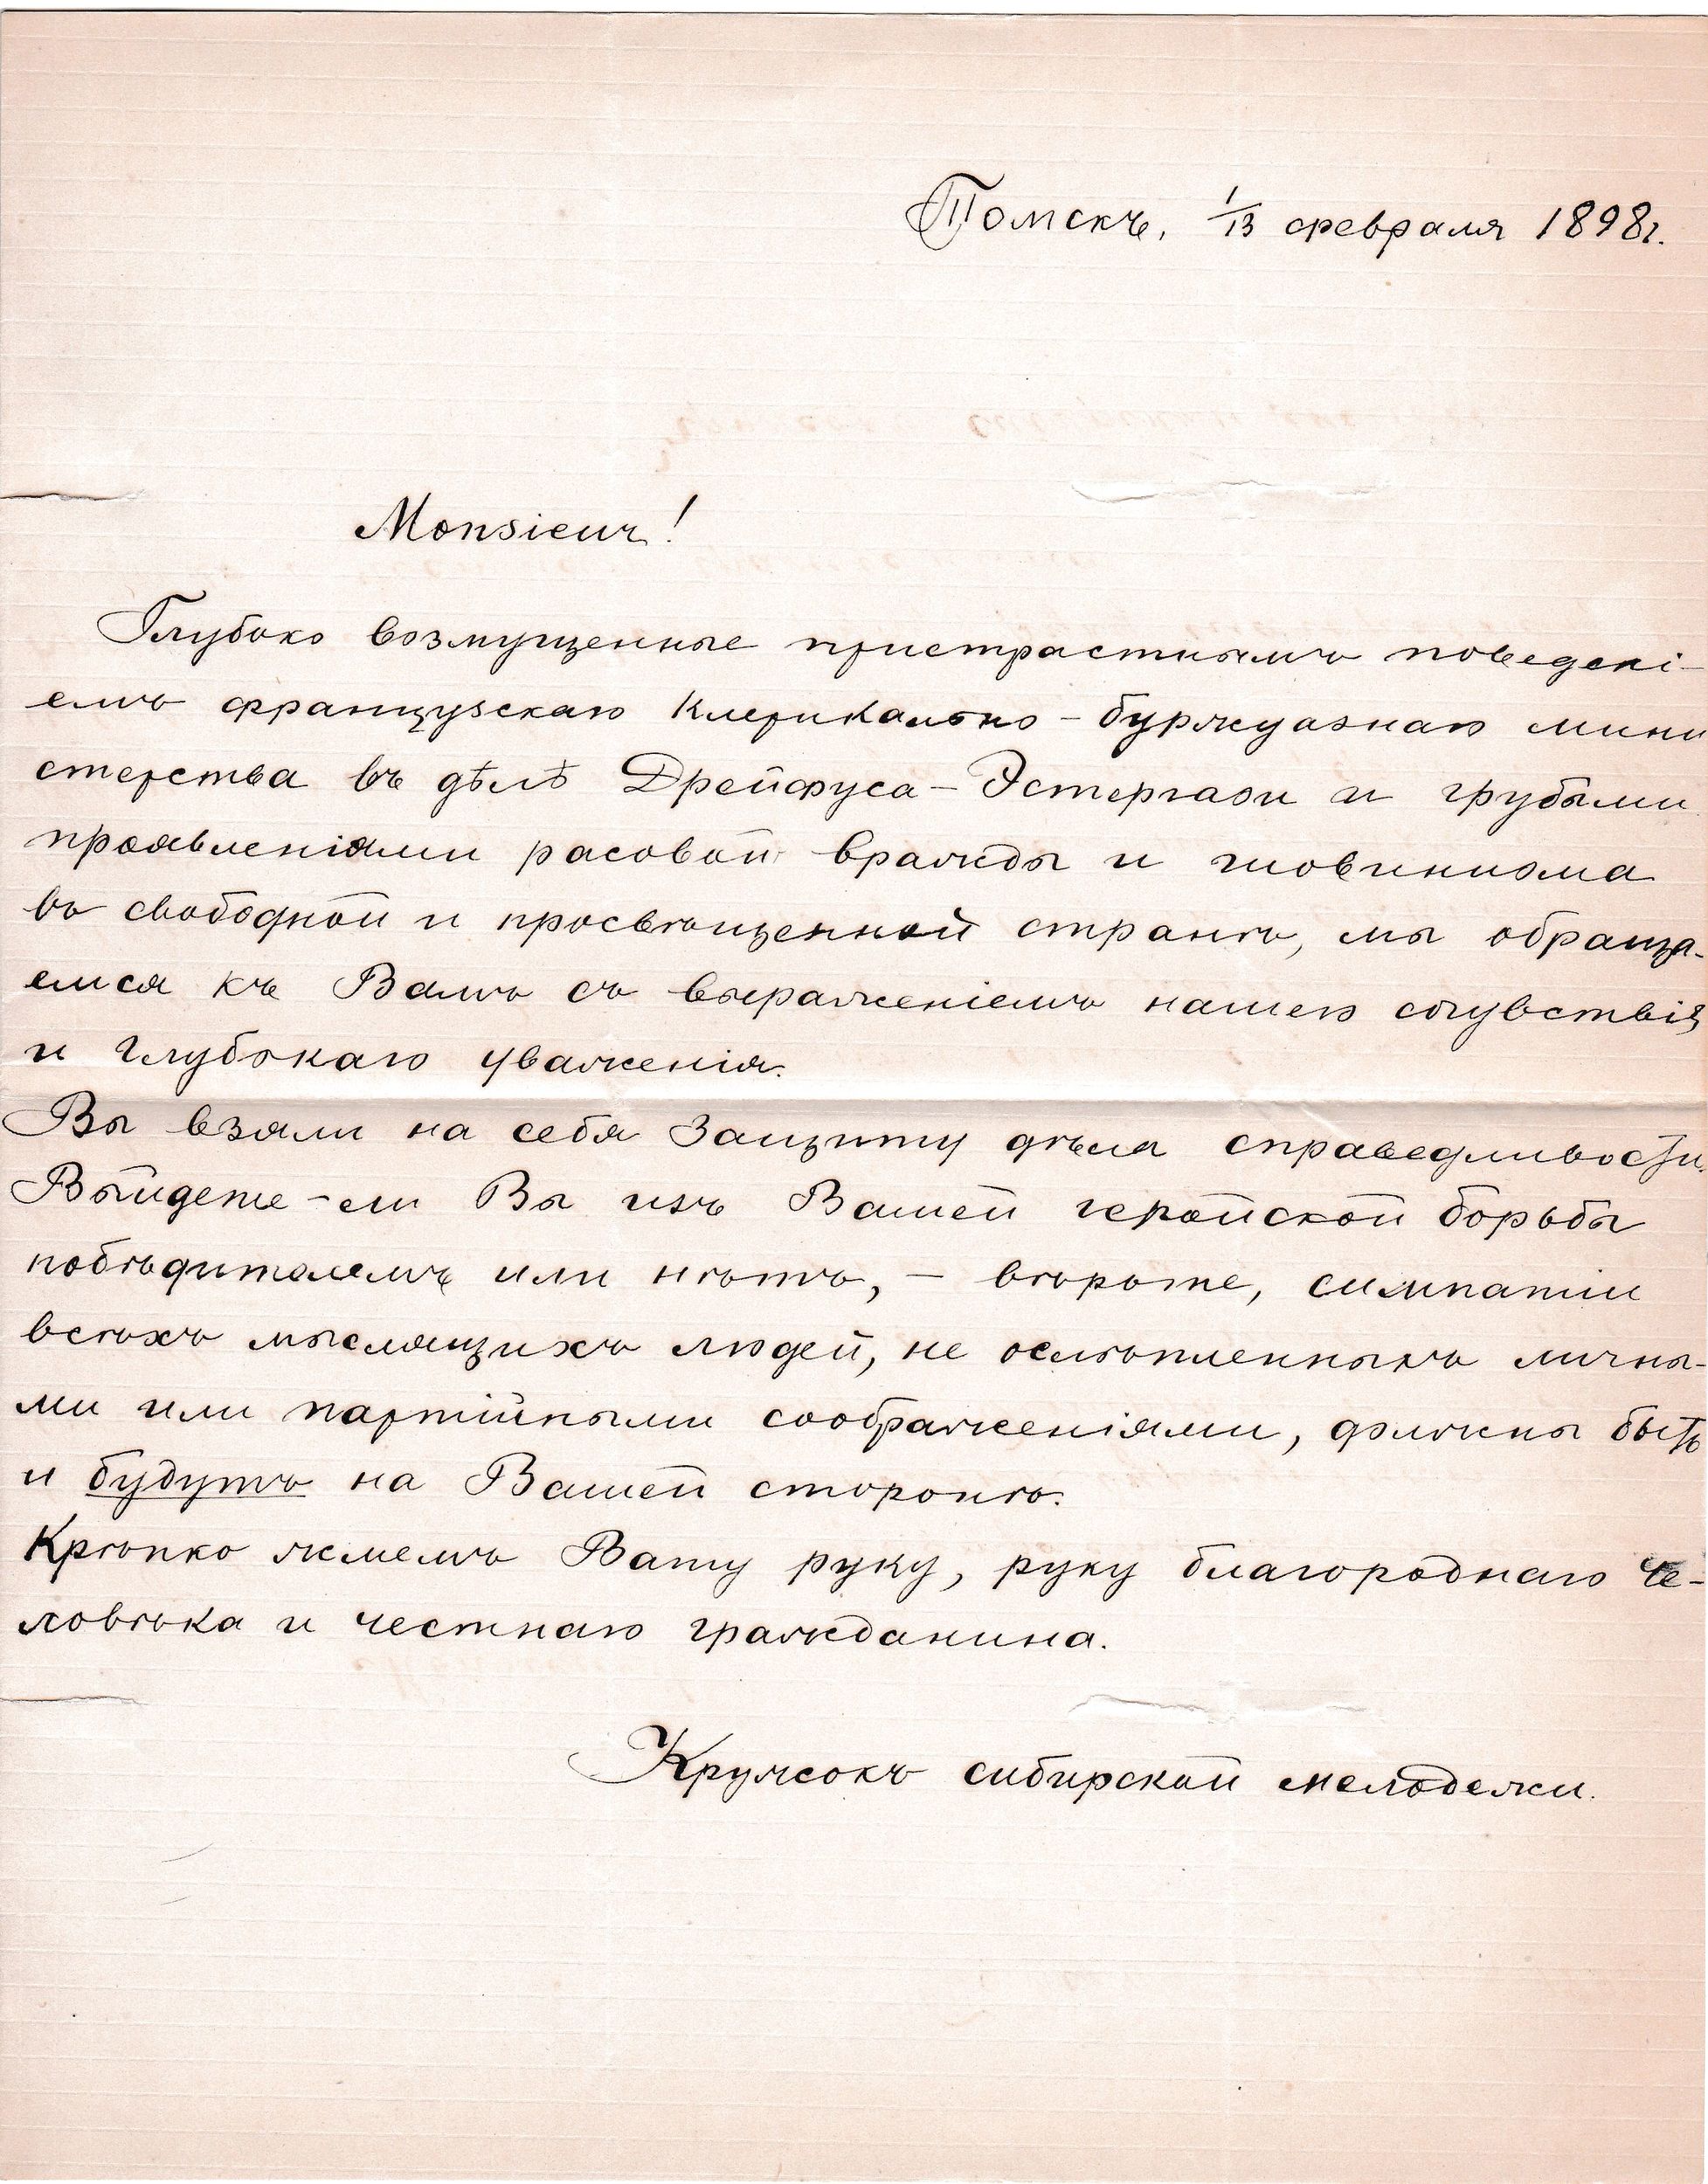 Томскъ, 1/13 февраля 1898г.
Monsieur!
Глубоко возмущенные пристрастнымъ поведені-
емъ французскаго клерикально-буржуазнаго мини
стерства въ дѣлѣ Дрейфуса-Эстергази и грубыми
проявленіями расовой вражды и шовинизма
въ свободной и просвѣщенной странѣ, мы обраща-
емся къ Вамъ съ выраженіемъ нашего сочувствія
и глубокаго уваженія.
Вы взяли на себя защиту дѣла справедливости.
Выйдете-ли Вы изъ Вашей геройской борьбы
побѣдителемъ или нѣтъ, – вѣрьте, симпатіи
всѣхъ мыслящихъ людей, не ослѣпленныхъ личны-
ми или партійными соображеніями, должны быть
и будутъ на Вашей сторонѣ.
Крѣпко жмемъ Вашу руку, руку благороднаго че-
ловѣка и честнаго гражданина.
Кружокъ сибирской молодежи.